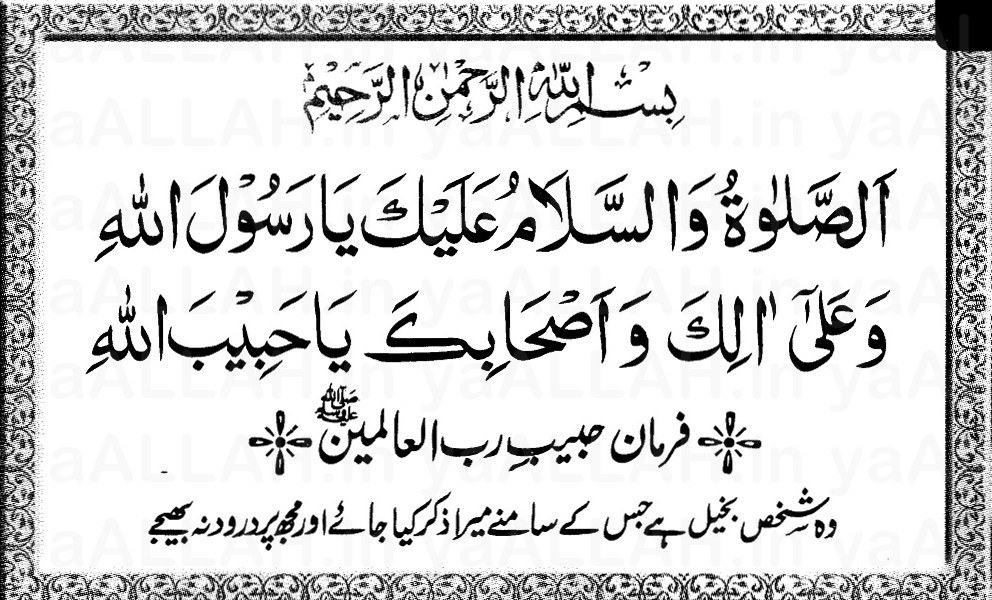 بِسْمِ اللّٰهِ الرَّحْمٰنِ الرَّحِيْمِ
اَلصَّلٰوةُ وَالسَّلَامُ عَلَيْكَ يَا رَسُوْلَ اللّٰهِ
وَعَلٰٓى اٰلِكَ وَاَصْحَابِكَ يَا حَبِيْبَ اللّٰهِ
فرمان حبیبِ رب العالمین ﷺ
وہ شخص بخیل ہے جس کے سامنے میرا ذکر کیا جائے اور مجھ پر درود نہ بھیجے
yaALLAH.in